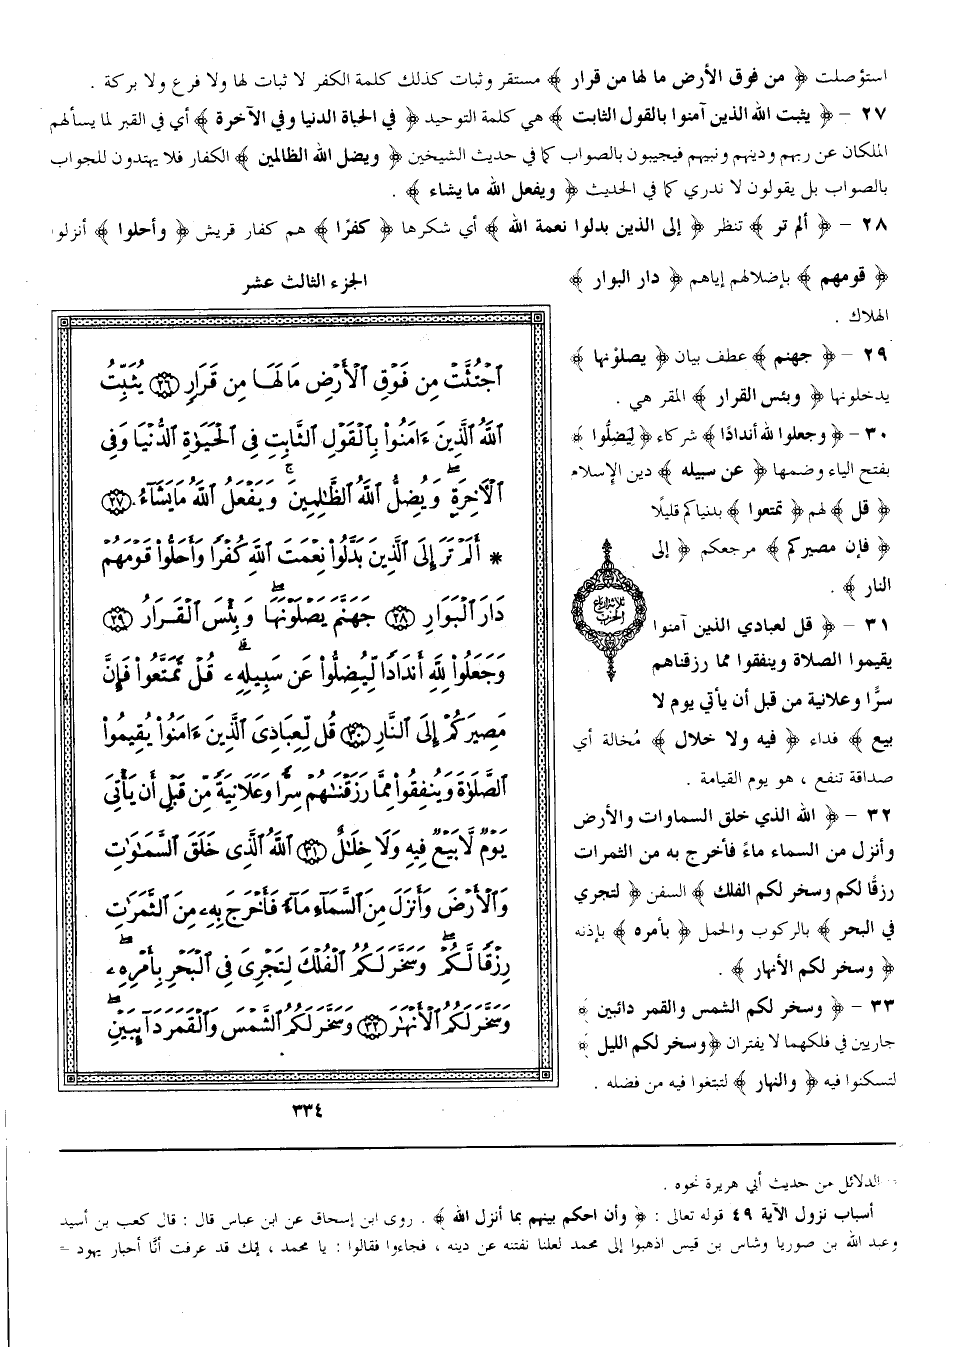 استؤصلت ﴿ من فوق الأرض ما لها من قرار ﴾ مستقر وثبات كذلك كلمة الكفر لا ثبات لها ولا فرع ولا بركة .
٢٧ - ﴿ يثبت الله الذين آمنوا بالقول الثابت ﴾ هي كلمة التوحيد ﴿ في الحياة الدنيا وفي الآخرة ﴾ أي في القبر لما يسألهم
الملكان عن ربهم ودينهم ونبيهم فيجيبون بالصواب كما في حديث الشيخين ﴿ ويضل الله الظالمين ﴾ الكفار فلا يهتدون للجواب
بالصواب بل يقولون لا ندري كما في الحديث ﴿ ويفعل الله ما يشاء ﴾ .
٢٨ - ﴿ ألم تر ﴾ تنظر ﴿ إلى الذين بدلوا نعمة الله ﴾ أي شكرها ﴿ كفرًا ﴾ هم كفار قريش ﴿ وأحلوا ﴾ أنزلوا
﴿ قومهم ﴾ بإضلالهم إياهم ﴿ دار البوار ﴾
الهلاك .
٢٩ - ﴿ جهنم ﴾ عطف بيان ﴿ يصلوْنها ﴾
يدخلونها ﴿ وبئس القرار ﴾ المقر هي .
٣٠ - ﴿ وجعلوا لله أندادًا ﴾ شركاء ﴿ لِيَضِلُّوا ﴾
بفتح الياء وضمها ﴿ عن سبيله ﴾ دين الإسلام
﴿ قل ﴾ لهم ﴿ تمتعوا ﴾ بدنياكم قليلًا
﴿ فإن مصيركم ﴾ مرجعكم ﴿ إلى
النار ﴾ .
٣١ - ﴿ قل لعبادي الذين آمنوا
يقيموا الصلاة وينفقوا مما رزقناهم
سرًّا وعلانية من قبل أن يأتي يوم لا
بيع ﴾ فداء ﴿ فيه ولا خلال ﴾ مُخالة أي
صداقة تنفع ، هو يوم القيامة .
٣٢ - ﴿ الله الذي خلق السماوات والأرض
وأنزل من السماء ماءً فأخرج به من الثمرات
رزقًا لكم وسخر لكم الفلك ﴾ السفن ﴿ لتجري
في البحر ﴾ بالركوب والحمل ﴿ بأمره ﴾ بإذنه
﴿ وسخر لكم الأنهار ﴾ .
٣٣ - ﴿ وسخر لكم الشمس والقمر دائبين ﴾
جاريين في فلكهما لا يفتران ﴿ وسخر لكم الليل ﴾
لتسكنوا فيه ﴿ والنهار ﴾ لتبتغوا فيه من فضله .
ثلاثة أرباع
الحزب
الجزء الثالث عشر
ٱجْتُثَّتْ مِن فَوْقِ ٱلْأَرْضِ مَا لَهَا مِن قَرَارٍ ﴿٢٦﴾ يُثَبِّتُ
ٱللَّهُ ٱلَّذِينَ ءَامَنُوا۟ بِٱلْقَوْلِ ٱلثَّابِتِ فِى ٱلْحَيَوٰةِ ٱلدُّنْيَا وَفِى
ٱلْآخِرَةِ ۖ وَيُضِلُّ ٱللَّهُ ٱلظَّـٰلِمِينَ ۚ وَيَفْعَلُ ٱللَّهُ مَا يَشَآءُ ﴿٢٧﴾
* أَلَمْ تَرَ إِلَى ٱلَّذِينَ بَدَّلُوا۟ نِعْمَتَ ٱللَّهِ كُفْرًا وَأَحَلُّوا۟ قَوْمَهُمْ
دَارَ ٱلْبَوَارِ ﴿٢٨﴾ جَهَنَّمَ يَصْلَوْنَهَا ۖ وَبِئْسَ ٱلْقَرَارُ ﴿٢٩﴾
وَجَعَلُوا۟ لِلَّهِ أَندَادًا لِّيُضِلُّوا۟ عَن سَبِيلِهِۦ ۗ قُلْ تَمَتَّعُوا۟ فَإِنَّ
مَصِيرَكُمْ إِلَى ٱلنَّارِ ﴿٣٠﴾ قُل لِّعِبَادِىَ ٱلَّذِينَ ءَامَنُوا۟ يُقِيمُوا۟
ٱلصَّلَوٰةَ وَيُنفِقُوا۟ مِمَّا رَزَقْنَـٰهُمْ سِرًّا وَعَلَانِيَةً مِّن قَبْلِ أَن يَأْتِىَ
يَوْمٌ لَّا بَيْعٌ فِيهِ وَلَا خِلَـٰلٌ ﴿٣١﴾ ٱللَّهُ ٱلَّذِى خَلَقَ ٱلسَّمَـٰوَٰتِ
وَٱلْأَرْضَ وَأَنزَلَ مِنَ ٱلسَّمَآءِ مَآءً فَأَخْرَجَ بِهِۦ مِنَ ٱلثَّمَرَٰتِ
رِزْقًا لَّكُمْ ۖ وَسَخَّرَ لَكُمُ ٱلْفُلْكَ لِتَجْرِىَ فِى ٱلْبَحْرِ بِأَمْرِهِۦ ۖ
وَسَخَّرَ لَكُمُ ٱلْأَنْهَـٰرَ ﴿٣٢﴾ وَسَخَّرَ لَكُمُ ٱلشَّمْسَ وَٱلْقَمَرَ دَآئِبَيْنِ ۖ
٣٣٤
= الدلائل من حديث أبي هريرة نحوه .
أسباب نزول الآية ٤٩ قوله تعالى : ﴿ وأن احكم بينهم بما أنزل الله ﴾ . روى ابن إسحاق عن ابن عباس قال : قال كعب بن أسيد
وعبد الله بن صوريا وشاس بن قيس اذهبوا إلى محمد لعلنا نفتنه عن دينه ، فجاءوا فقالوا : يا محمد ، إنك قد عرفت أنّا أحبار يهود =